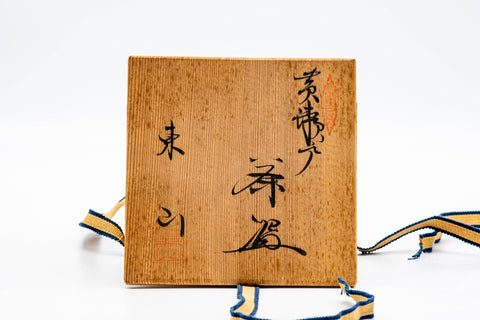 黄瀬戸
茶碗
東山